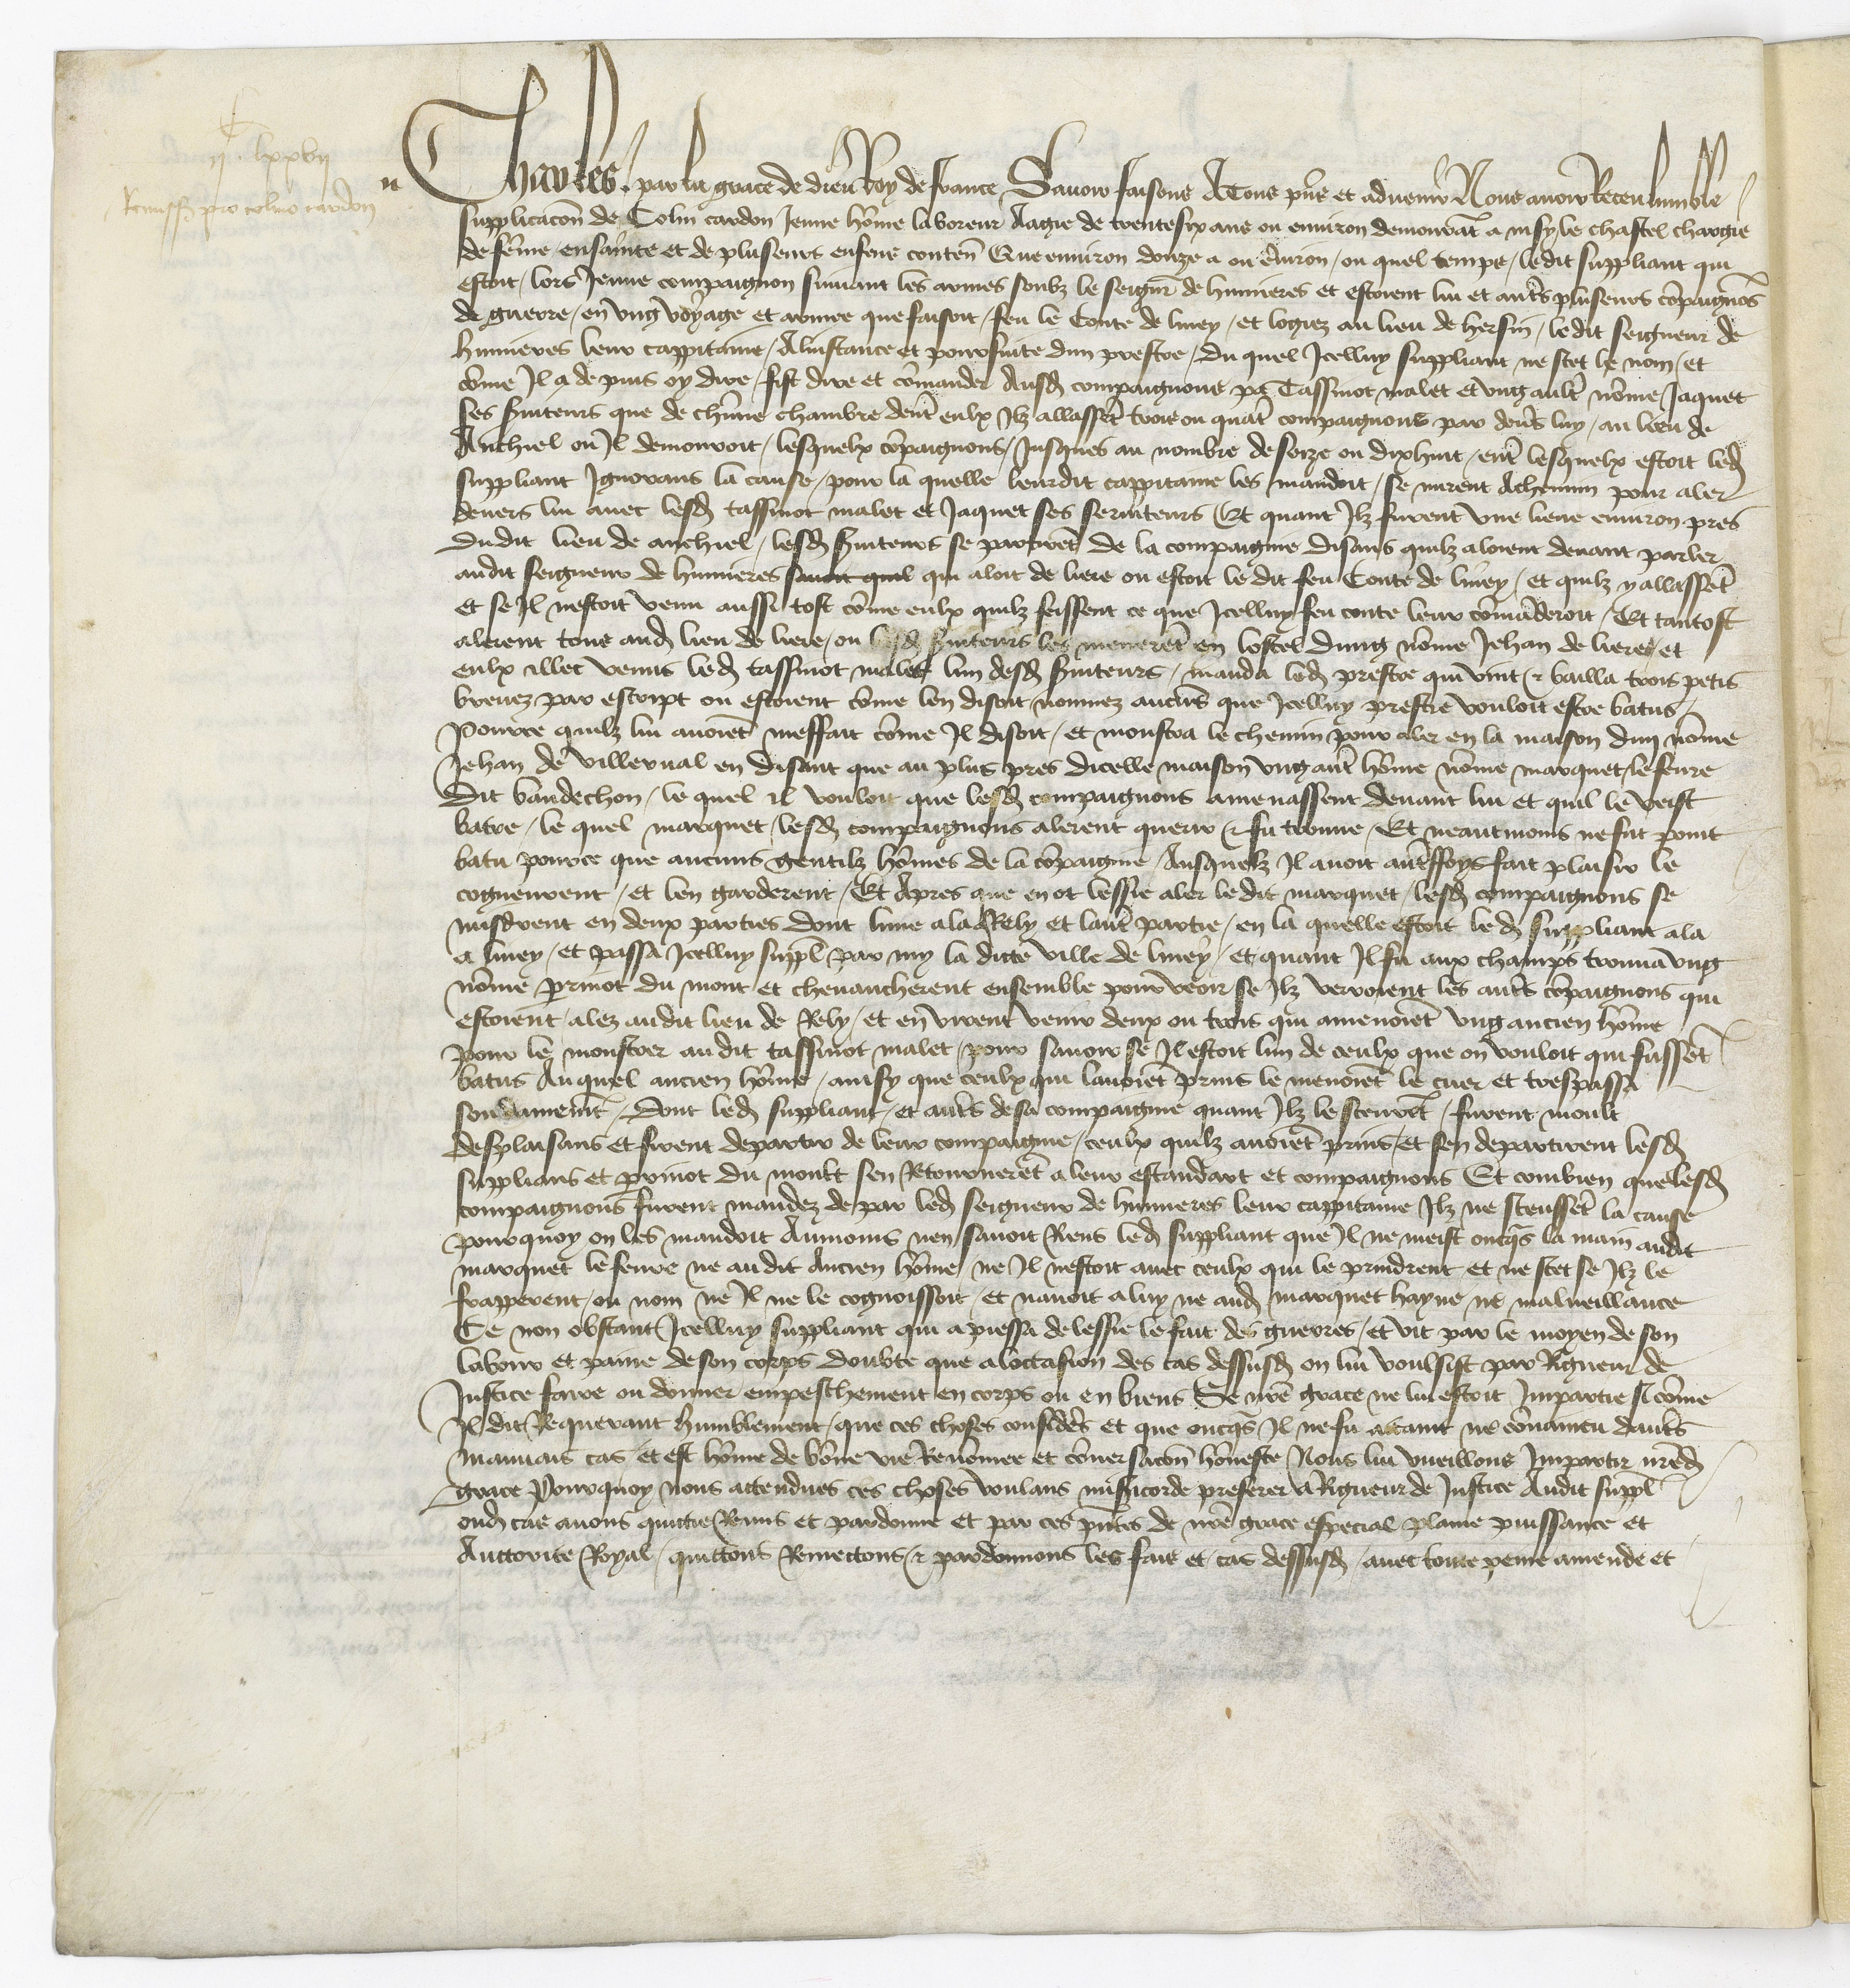 ii. lxxvii
Remissio pro colino cardon
Charles par la grace de dieu Roy de france Sauoir faisons A Tous pñs et aduenir Nous auoir Receu humble
supplicacon de Colin cardon Jeune hõme laboreur Aagie de trente six ans ou enuiron demourãt a nysy le chastel chargie
de fẽme ensainte et de pluseurs enfens conteñ Que enuiron douze a ou ẽuiron / ou quel temps / ledit suppliant qui
estoit / lors Jeune compaignon suiuant les armes soubz le seignr̃ de humieres et estoient lui et aut̃s pluseurs cõpaignõs
de guerre / en vng voyage et armee que faisoit / feu le Conte de liney / et logiez au lieu de hersin / ledit seigneur de
humieres leur cappitaine / Alinstance et poursuite dun prestre / du quel Jcelluy suppliant ne scet le nom / et
cõme Jl a de puis oy dire / fist dire et cõmander Ausd compaignons pr Tassinot malet et vng ault̃ nõme Jaquet
ses s̃uiteurs que de chũne chambre dent̃ eulx Jlz allassẽt trois ou quat̃ compaignons par deũs luy / au lieu de
Anchiel ou Jl demouroit / lesquelx cõpaignons / Jusques au nombre de seize ou dixhuit / ent̃ lesquelx estoit led
suppliant Jgnorans la cause / pour la quelle leurdit cappitaine les mandoit / se mirent Achemin pour aler
deuers lui auec lesd tassinot malet et Jaquet ses seruiteurs Et quant Jlz furent vne lieue enuiron pres
dudit lieu de anchiel / lesd s̃uiteurs se partirẽt de la compaignie disans quilz aloient deuant parler
audit seigneur de humieres sauoit quil qui aloit de liere ou estoit le dit feu Conte de liney / et quilz y allassẽt
et se Jl nestoit venu aussi tost cõme eulx quilz feissent ce que Jcelluy feu conte leur cõmãderoit / Et tantost
alerent tous aud lieu de liere / ou lesd s̃uiteurs les menerẽt en lostel dung nõme Jehan de liere / et
eulx illec venus led tassinot malet lun desd s̃uiteurs / manda led prestre qui vint / & bailla trois petis
breuez par escript ou estoient cõme len disoit nommez aucũs que Jcelluy prestre vouloit estre batus /
Pource quilz lui auoiẽt meffait cõme Jl disoit / et monstra le chemin pour aler en la maison dun nõme
Jehan de villerual en disant que au plus pres dicelle maison vng aut̃ hõme nõme marquet lefeure
dit bandechon / le quel il vouloit que lesd compaignons amenassent deuant lui et quil le veist
batre / le quel marquet / lesd compaignons alerent querir & fu trouue / Et neantmoins ne fut point
batu pource que aucuns gentilz hõmes de la cõpaignie / Ausquelz Jl auoit aut̃ffoys fait plaisir le
cogneurent / et len garderent / Et Apres que en ot lessie aler ledit marquet / lesd compaignons se
misdrent en deux parties dont lune ala a Rely et laut̃ partie / en la quelle estoit led suppliant ala
a liney / et passa Jcelluy suppl par my la dicte ville de liney / et quant Jl fu aux champs trouua vng
nõme Perinot du mont et cheuaucherent ensemble pour veoir se Jlz verroient les aut̃s cõpaignons qui
estoient / alez audit lieu de Rely / et en virent venir deux ou trois qui amenoiẽt vng ancien hõme
pour le monstrer audit tassinot malet / pour sauoir se Jl estoit lun de ceulx que on vouloit qui fussẽt
batus Auquel ancien hõme / ainsy que ceulx qui lauoiẽt prins le menoiẽt le cuer et trespassa
soudainem̃t / Dont led suppliant / et aut̃s de sa compaignie quant Jlz le sceurẽt / furent moult
desplaisans et firent departir de leur compaignie / ceulx quilz auoiẽt prins / et sen departirent lesd
supplians et perinot du mont sen Retournerẽt a leur estandart et compaignons Et combien que lesd
compaignons furent mandez de par led seigneur de humieres leur cappitaine Jlz ne sceussẽt la cause
pourquoy on les mandoit Aumoins nen sauoit Riens led suppliant que Jl ne meist oncq̃s la main audit
marquet lefeure ne audit Ancien hõme / ne Jl nestoit auec ceulx qui le prindrent et ne scet se Jlz le
frapperent / ou nom ne Jl ne le cognoissoit / et nauoit a luy ne aud marquet hayne ne malueillance
Ce non obstant Jcelluy suppliant qui a piessa delessie le fait des guerres / et vit par le moyen de son
labour et paine de son corps doubte que aloccasion des cas dessusd on lui voulsist par Rigueur de
Justice faire ou donner empeschement en corps ou en biens Se nr̃e grace ne lui estoit Jmpartie si cõme
Jl dit Requerant humblement / que ces choses considerẽs et que oncqs Jl ne fu attaint ne cõuaincu daut̃s
mauuais cas et est hõme de bõne vie Renõmee et cõuersacoñ hõneste Nous lui vueillons Jmpartir nr̃ed
grace Pourquoy nous attendues ces choses voulans mis̃icorde preferer A Rigueur de Justice Audit suppl
oud cas auons quictie Remis et pardonne et par ces pñtes de nr̃e grace especial plaine puissance et
Auctorite Royal / quictons Remectons & pardonnons les fais et cas dessusd / auec toute peine amende et